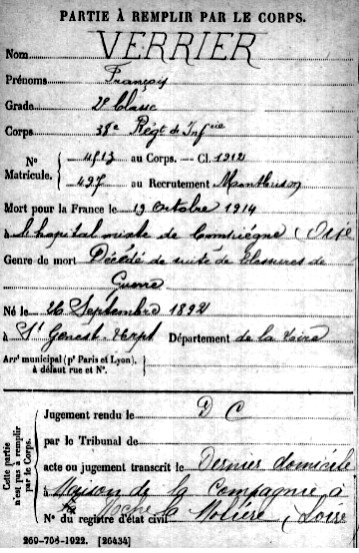 PARTIE À REMPLIR PAR LE CORPS.
Nom VERRIER
Prénoms François
Grade 2e Classe
Corps 38e Régt d'Infie
N° Matricule. 4513 au Corps. — Cl. 1912
497 au Recrutement Montbrison
Mort pour la France le 19 Octobre 1914
à l'hopital mixte de Compiègne (Oise
Genre de mort Décédé de suite de blessures de
Guerre
Né le 26 Septembre 1892
à St Genest-Lerpt Département de la Loire
Arrt municipal (pr Paris et Lyon),
à défaut rue et N°.
Cette partie n'est pas à remplir par le Corps.
Jugement rendu le D C
par le Tribunal de
acte ou jugement transcrit le Dernier domicile
Maison de la Compagnie à
N° du registre d'état civil Roche la Molière, Loire
269-708-1922. [26434]